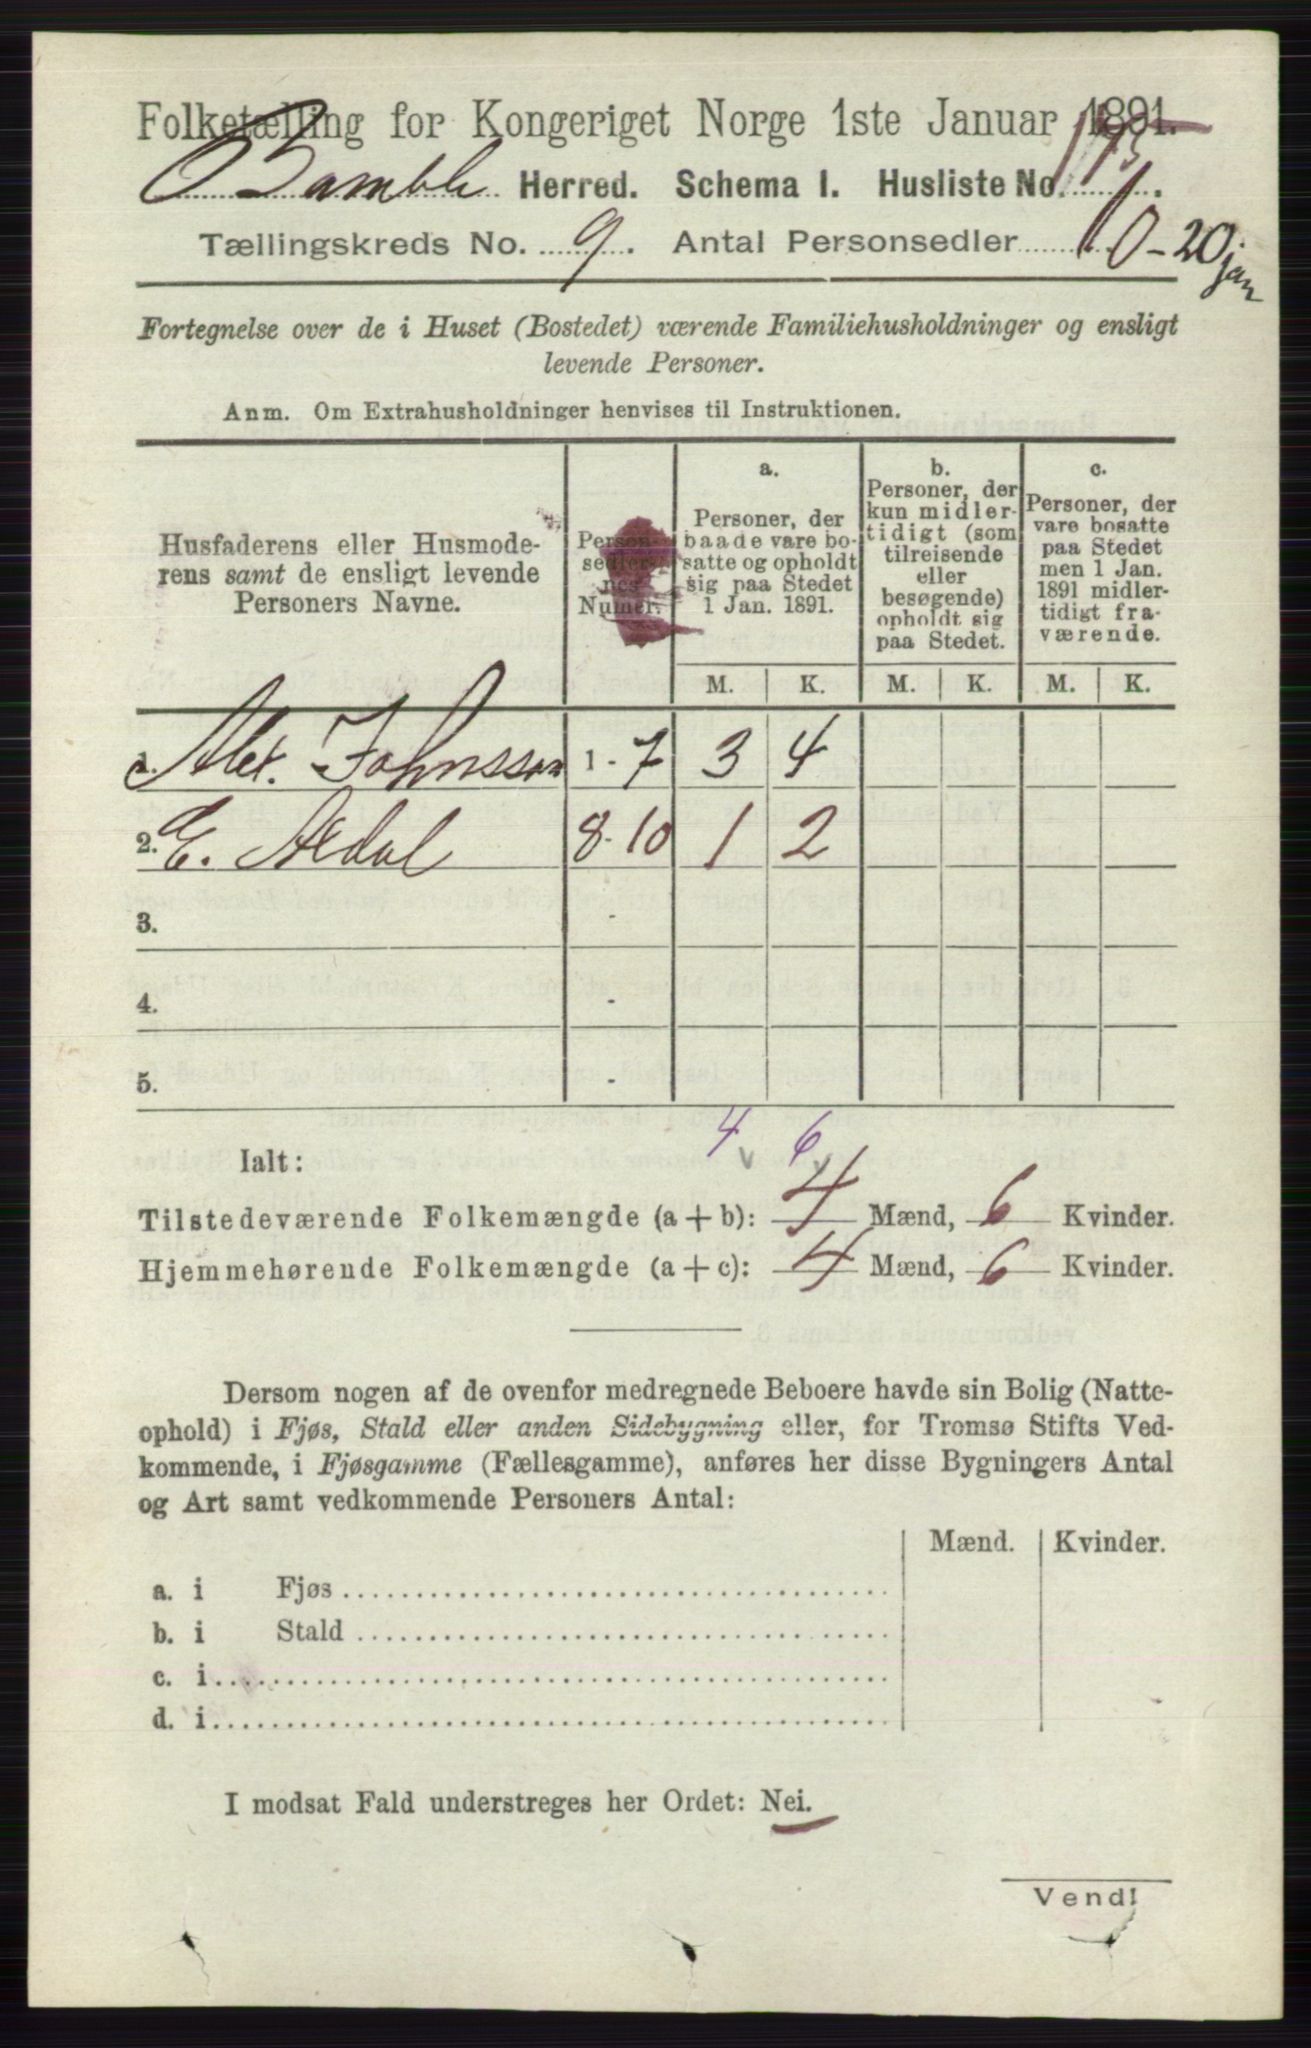 Folketælling for Kongeriget Norge 1ste Januar 1891.
Bamble Herred. Schema I. Husliste No.
Tællingskreds No. 9. Antal Personsedler 10 - 20 jan
Fortegnelse over de i Huset (Bostedet) værende Familiehusholdninger og ensligt
levende Personer.
Anm. Om Extrahusholdninger henvises til Instruktionen.
Husfaderens eller Husmode-
rens samt de ensligt levende
Personers Navne.
Person-
sedler-
nes
Numer.
a.
Personer, der
baade vare bo-
satte og opholdt
sig paa Stedet
1 Jan. 1891.
b.
Personer, der
kun midler-
tidigt (som
tilreisende
eller
besøgende)
opholdt sig
paa Stedet.
c.
Personer, der
vare bosatte
paa Stedet
men 1 Jan.
1891 midler-
tidigt fra-
værende.
M. K. M. K. M. K.
1. Alet. Johnsson 1 - 7 3 4
2. E. Ædal 8 - 10 1 2
3. -
4. -
5. -
4 6
Ialt:
Tilstedeværende Folkemængde (a + b): 4 Mænd, 6 Kvinder.
Hjemmehørende Folkemængde (a + c): 4 Mænd, 6 Kvinder.
Dersom nogen af de ovenfor medregnede Beboere havde sin Bolig (Natte-
ophold) i Fjøs, Stald eller anden Sidebygning eller, for Tromsø Stifts Ved-
kommende, i Fjøsgamme (Fællesgamme), anføres her disse Bygningers Antal
og Art samt vedkommende Personers Antal:
Mænd. Kvinder.
a. i Fjøs
b. i Stald
c. i
d. i
I modsat Fald understreges her Ordet: Nei.
Vend!